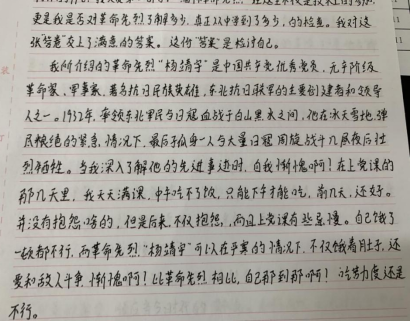 更是我是否对革命先烈了解多少,真正从中学到了多少,的检查。我对这
张"答卷"交上了满意的答案。这份"答案"是检讨自己。
我所介绍的革命先烈"杨靖宇"是中国共产党优秀党员,无产阶级
革命家、军事家、著名抗日民族英雄,东北抗日联军的主要创建者和领导
人之一。1932年,率领东北军民与日寇血战于白山黑水之间,他在冰天雪地,弹
尽粮绝的紧急情况下,最后孤身一人与大量日寇周旋战斗几昼夜后壮
烈牺牲。当我深入了解他的先进事迹时,自我惭愧啊!在上党课的
那几天里,我天天满课,中午吃不了饭,只能下午才能吃,前几天,还好。
并没有抱怨啥的,但是后来,不仅抱怨,而且上党课有些怠慢。自己饿了
一顿都不行,而革命先烈"杨靖宇"可以在那样的情况下,不仅饿着肚子,还
要和敌人斗争 惭愧啊!比革命先烈相比,自己那到那啊!吃努力度还是
不行。